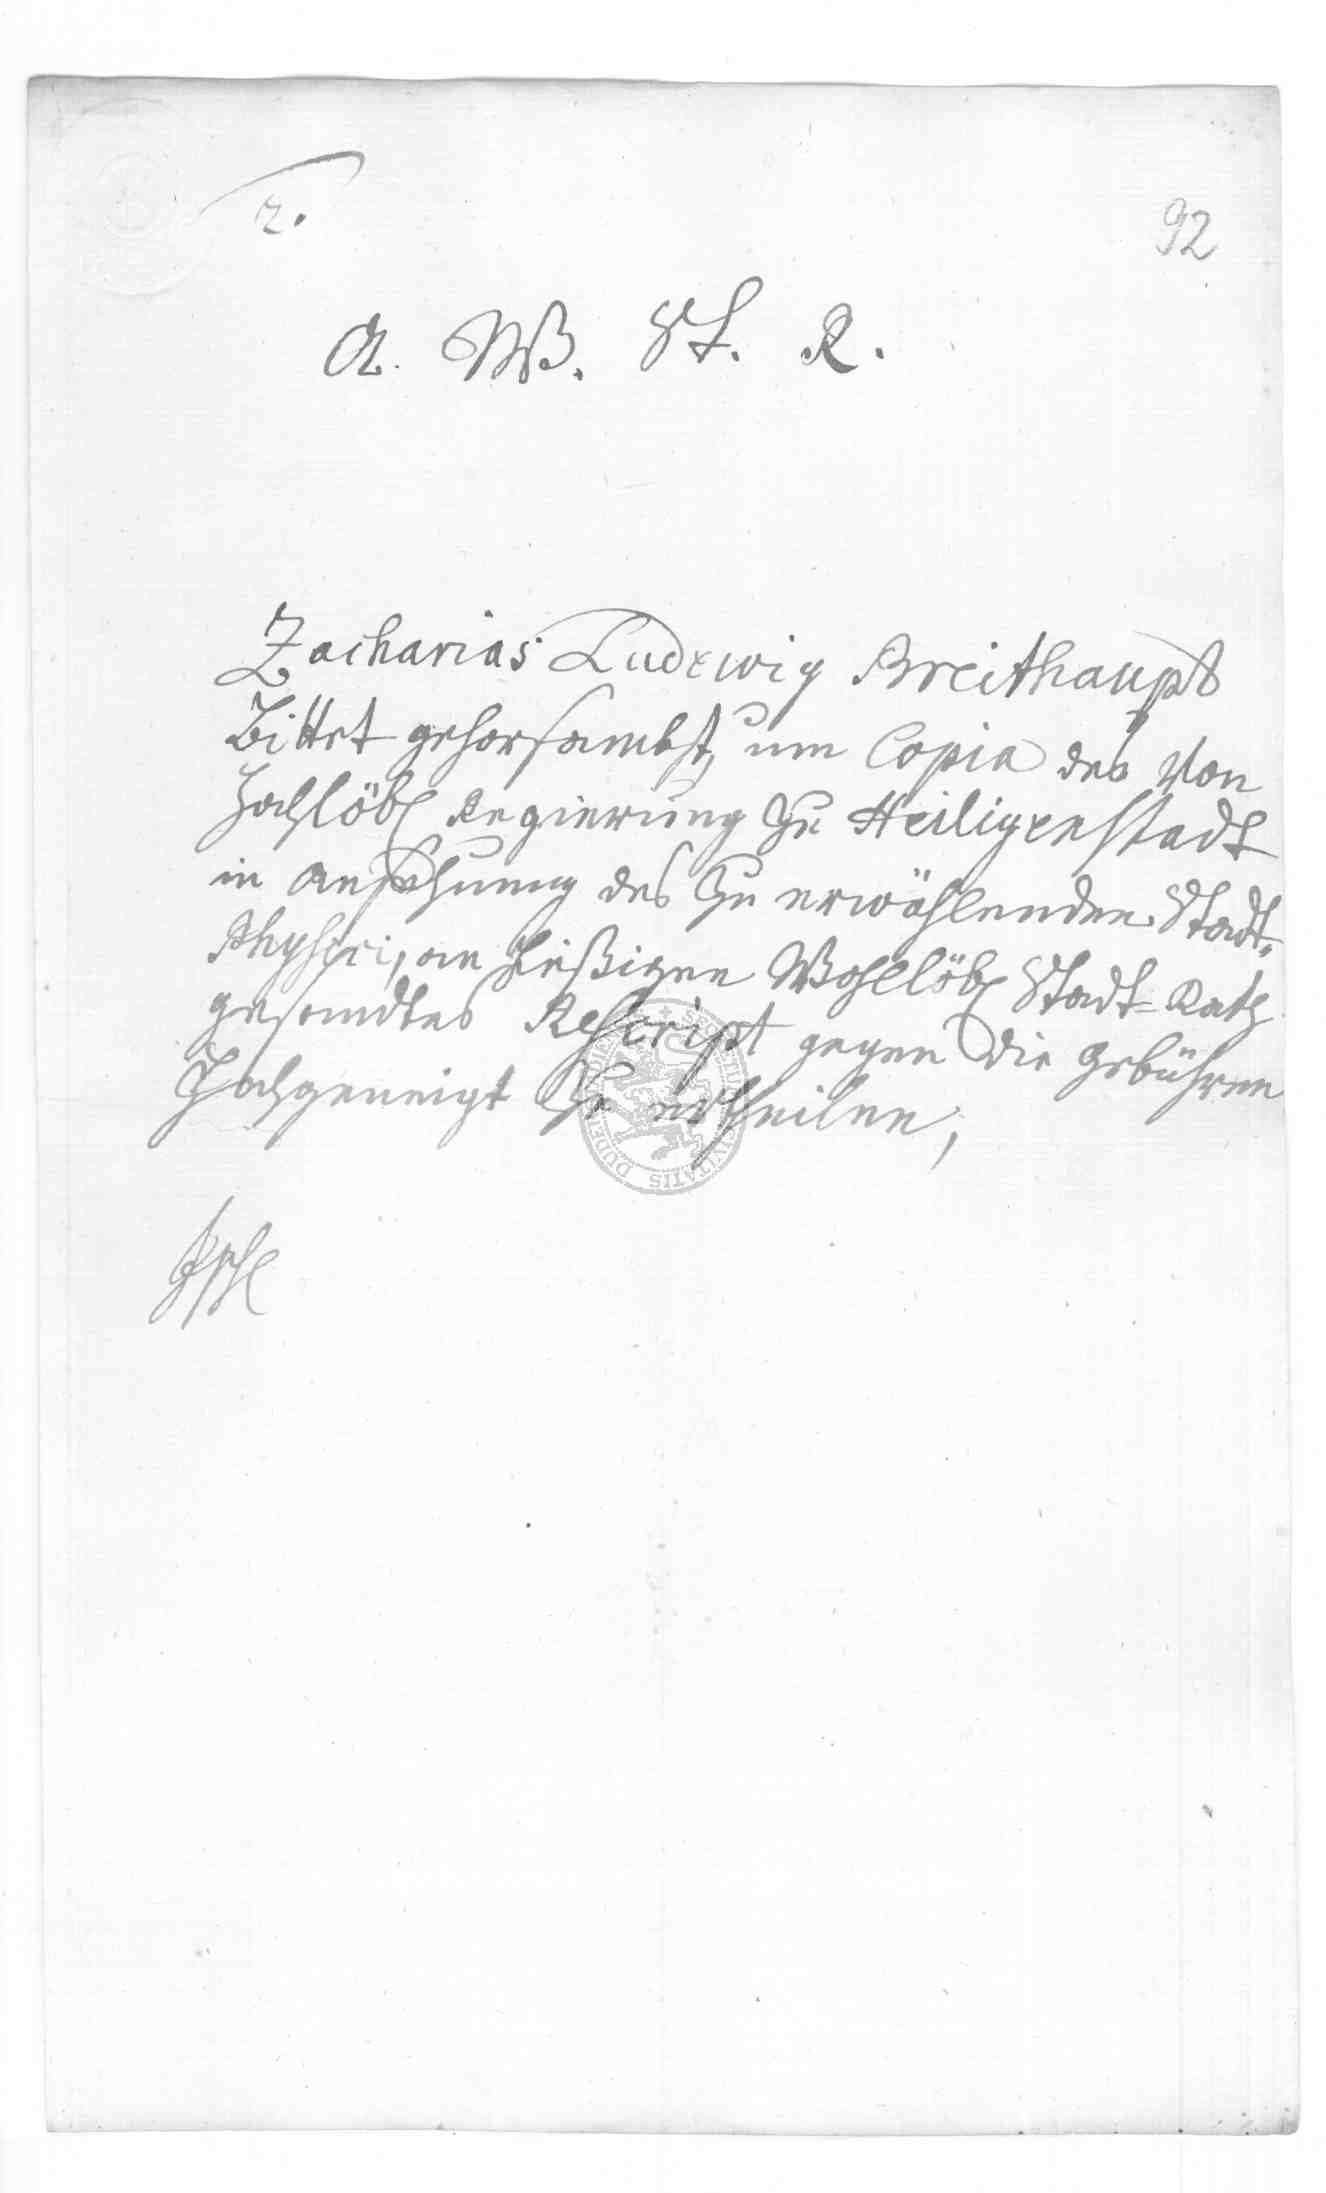 2.
92
A. W. St. R.
Zacharias Ludewig Breithaupt
Bittet gehorsambst, um Copia des Von
Hochlöbl Regierung zu Heiligenstadt
in Ansehung des zu erwöhlenden Stadt-
Physici, an hießigen Wohllöbl Stadt-Rath
gesandtes Rescript gegen die Gebühren
Hochgeneigt zu ertheilen,